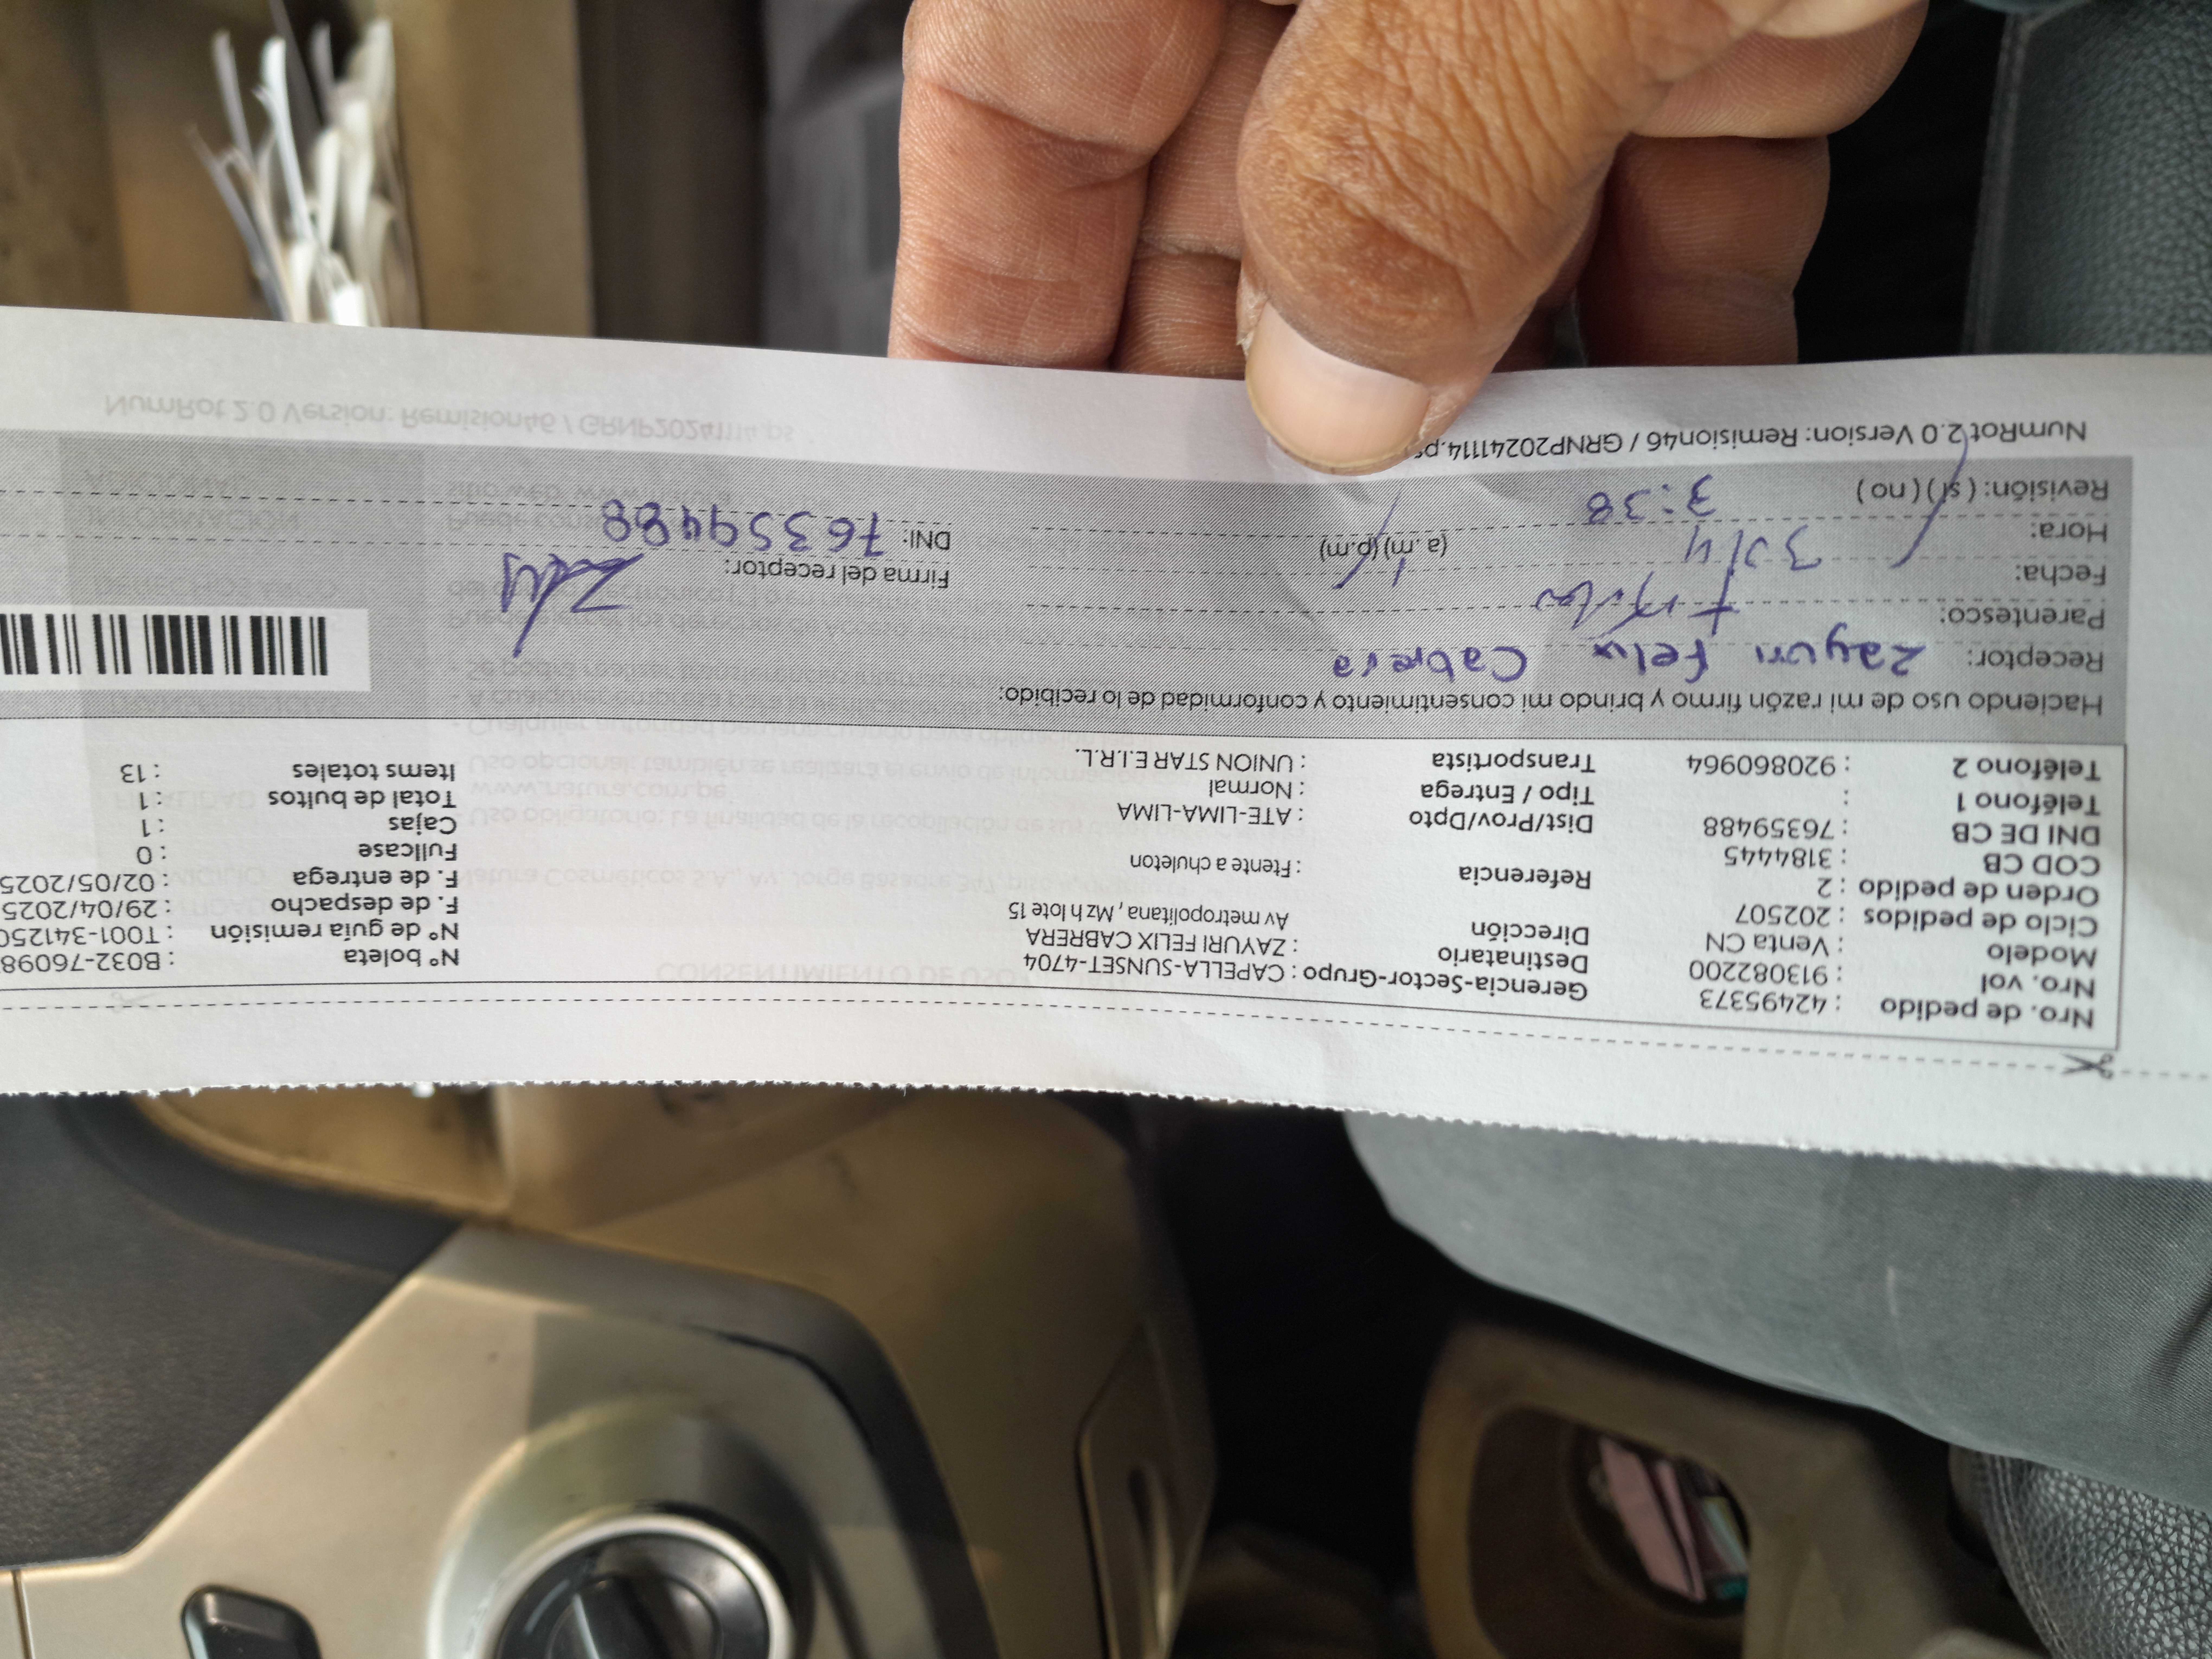 Nro. de pedido : 42495373
Nro. vol : 913082200
Modelo : Venta CN
Ciclo de pedidos : 202507
Orden de pedido : 2
COD CB : 3184445
DNI DE CB : 76359488
Teléfono 1 :
Teléfono 2 : 920860964
Gerencia-Sector-Grupo : CAPELLA-SUNSET-4704
Destinatario : ZAYURI FELIX CABRERA
Dirección Av metropolitana , Mz h lote 15
Referencia : Ftente a chuleton
Dist/Prov/Dpto : ATE-LIMA-LIMA
Tipo / Entrega : Normal
Transportista : UNION STAR E.I.R.L.
N° boleta : B032-76098
N° de guía remisión : T001-341250
F. de despacho : 29/04/2025
F. de entrega : 02/05/2025
Fullcase : 0
Cajas : 1
Total de bultos : 1
Items totales : 13
Haciendo uso de mi razón firmo y brindo mi consentimiento y conformidad de lo recibido:
Receptor: Zayuri Felix Cabrera
Parentesco:
Fecha: 30/4
Hora: 3:38 (a.m) (p.m)
Revisión: ( si ) ( no )
Firma del receptor:
DNI: 76359488
NumRot 2.0 Version: Remision46 / GRNP20241114.ps